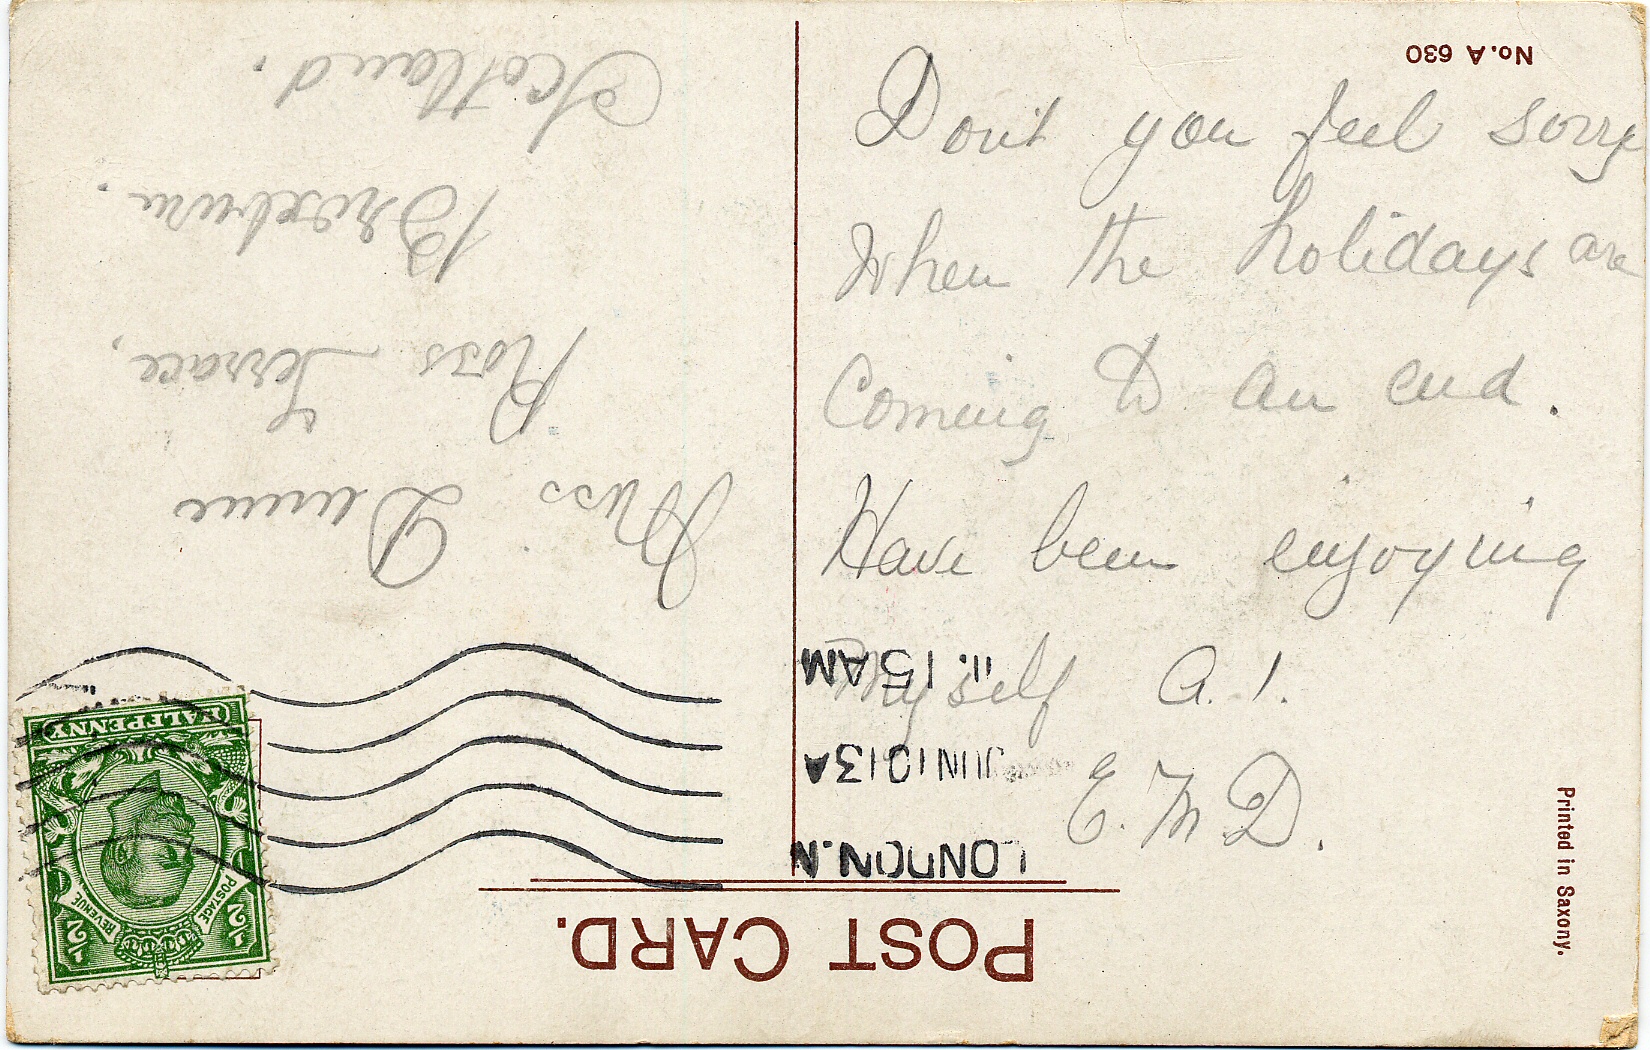 No. A 630
Don't you feel sorry
When the holidays are
Coming to an end.
Have been enjoying
myself A.1.
E. M. D.
Miss Dunn
Ross Terrace,
Broxburn.
Scotland.
POST CARD.
LONDON.N
JUN 10 13 A
11.15 AM
HALFPENNY
POSTAGE
REVENUE
1/2
1/2
Printed in Saxony.